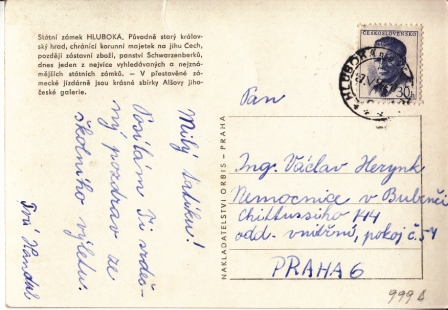 Státní zámek HLUBOKÁ. Původně starý králov-
ský hrad, chránící korunní majetek na jihu Čech,
později zástavní zboží, panství Schwarzenberků,
dnes jeden z nejvíce vyhledávaných a nejzná-
mějších státních zámků. – V přestavěné zá-
mecké jízdárně jsou krásné sbírky Alšovy jiho-
české galerie.
Milý tatíku!
Posílám Ti srdeč-
ný pozdrav ze
školního výletu.
Tvá
NAKLADATELSTVÍ ORBIS – PRAHA
ČESKOSLOVENSKO
30h
HLUBOKÁ
Pan
Ing. Václav Herynk
Nemocnice v Bubenči
Chittussiho 144
odd. vnitřní, pokoj č. 54
PRAHA 6